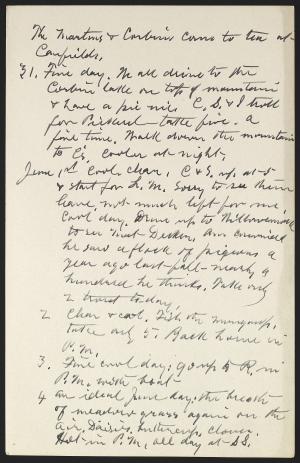 The Martins & Corbin come to tea at
Canfields,
31. Fine day. We all drive to the
Corbin lake on top of mountain
& have a pic nic. C. S. & I troll
for Pickerel – take five. A
fine time. Walk down the mountain
to C's. Cooler at night.
June 1st Cool, clear, C & S. up at 5
& start for L. M. Sorry to see them
leave, not much left for me,
cool day. Drive up to Willowemock
to see Mert Decker, Am convinced
he saw a flock of pigeons a
year ago last fall – nearly a
hundred he thinks. Take only
2 trout to day.
2 Clear & cool. Fish the mongaup,
take only 5. Back home in
P.M.
3. Fine cool day; go up to R. in
P.M. with boat
4 an ideal June day; the breath
of meadow grass again on the
air, Daisies, buttercups, clover.
Hot in P.M, all day at S.S.